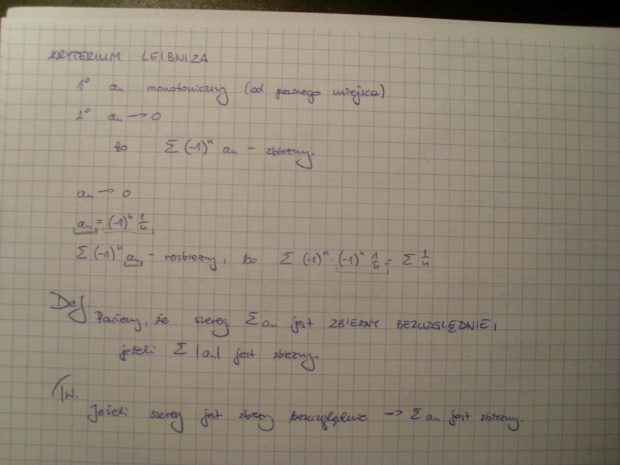 KRYTERIUM LEIBNIZA
1° an monotoniczny (od pewnego miejsca)
2° an → 0
to Σ (-1)ⁿ an - zbieżny.
an → 0
an = (-1)ⁿ 1/n
Σ (-1)ⁿ an - rozbieżny, bo Σ (-1)ⁿ · (-1)ⁿ 1/n = Σ 1/n
Def Mówimy, że szereg Σ an jest ZBIEŻNY BEZWZGLĘDNIE,
jeżeli Σ |an| jest zbieżny.
Tw.
Jeżeli szereg jest zbieżny bezwzględnie → Σ an jest zbieżny.